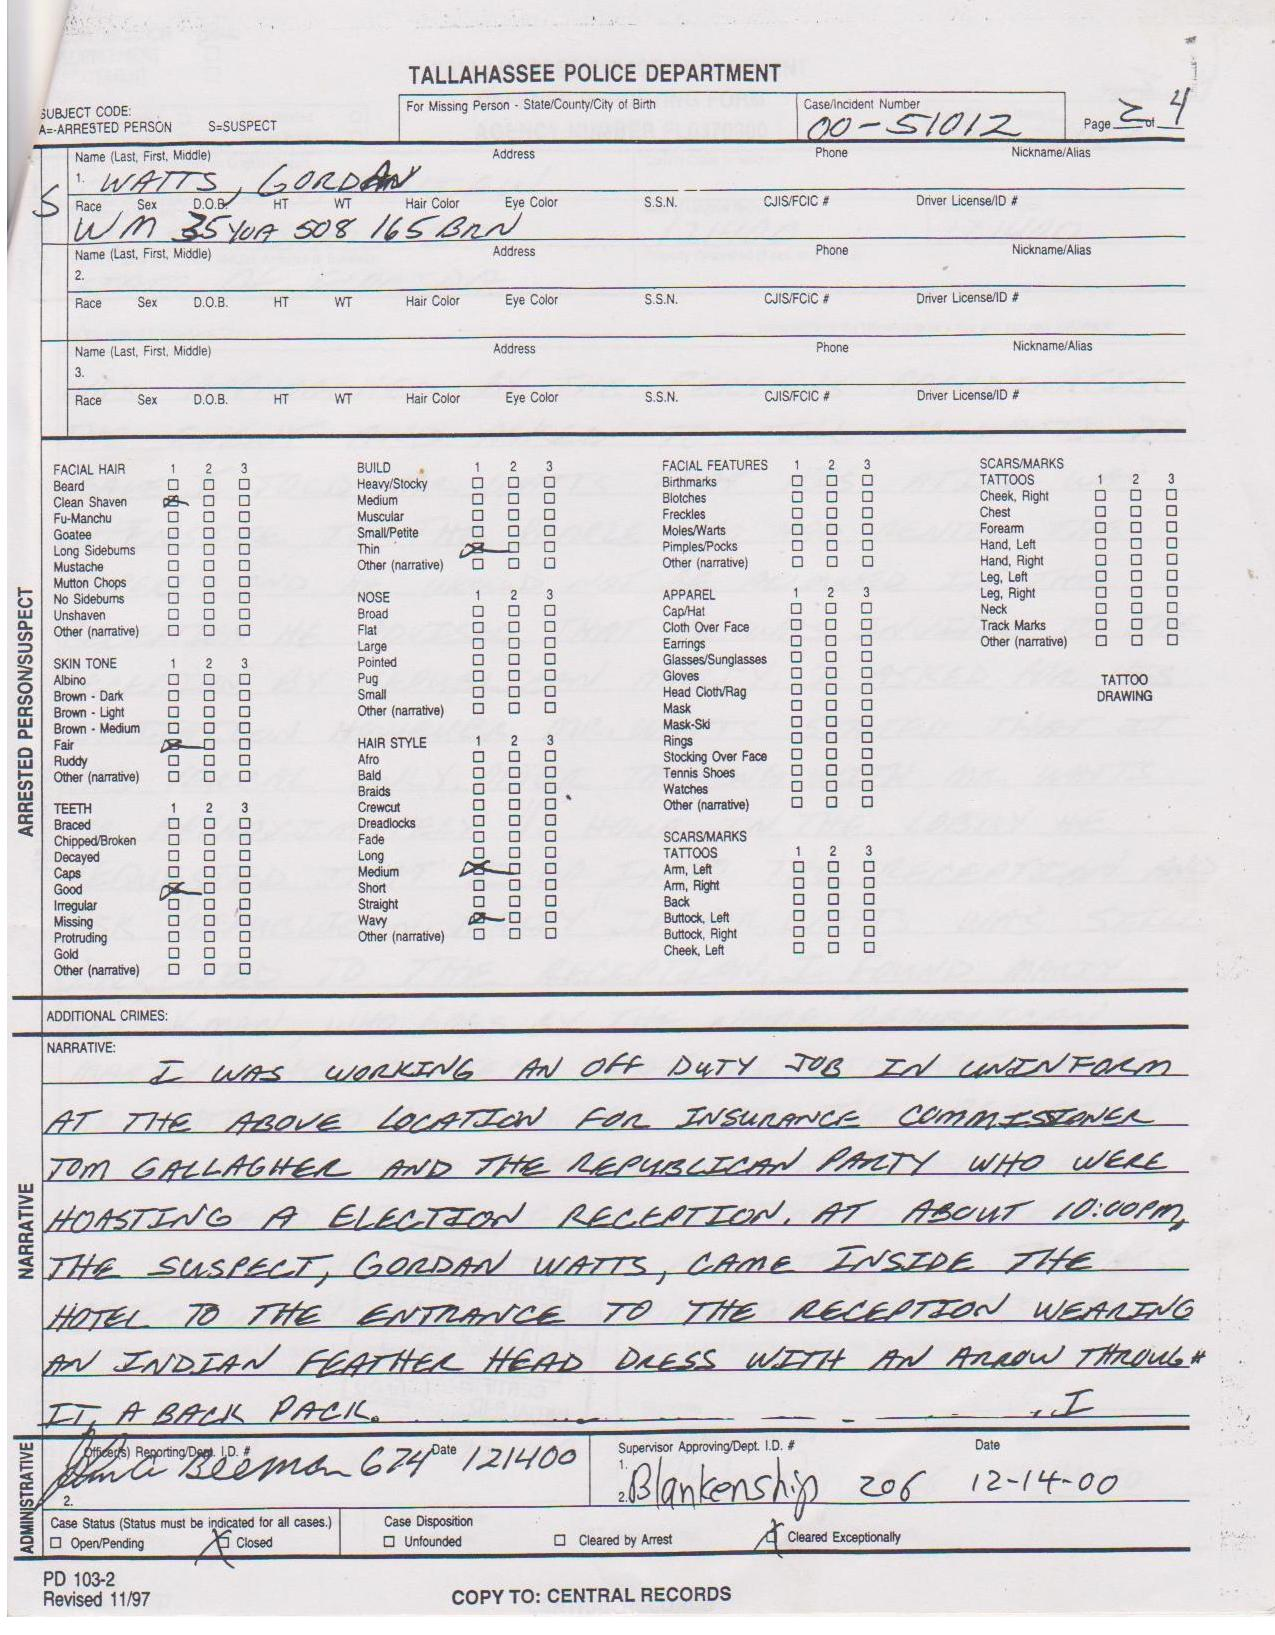 TALLAHASSEE POLICE DEPARTMENT
SUBJECT CODE:
A=-ARRESTED PERSON S=SUSPECT
For Missing Person - State/County/City of Birth
Case/Incident Number
00-51012
Page 2 of 4
Name (Last, First, Middle) Address Phone Nickname/Alias
S 1. WATTS, GORDAN
Race Sex D.O.B. HT WT Hair Color Eye Color S.S.N. CJIS/FCIC # Driver License/ID #
WM 35 YOA 508 165 BRN
Name (Last, First, Middle) Address Phone Nickname/Alias
2.
Race Sex D.O.B. HT WT Hair Color Eye Color S.S.N. CJIS/FCIC # Driver License/ID #
Name (Last, First, Middle) Address Phone Nickname/Alias
3.
Race Sex D.O.B. HT WT Hair Color Eye Color S.S.N. CJIS/FCIC # Driver License/ID #
ARRESTED PERSON/SUSPECT
FACIAL HAIR 1 2 3
Beard
Clean Shaven
Fu-Manchu
Goatee
Long Sideburns
Mustache
Mutton Chops
No Sideburns
Unshaven
Other (narrative)
SKIN TONE 1 2 3
Albino
Brown - Dark
Brown - Light
Brown - Medium
Fair
Ruddy
Other (narrative)
TEETH 1 2 3
Braced
Chipped/Broken
Decayed
Caps
Good
Irregular
Missing
Protruding
Gold
Other (narrative)
BUILD 1 2 3
Heavy/Stocky
Medium
Muscular
Small/Petite
Thin
Other (narrative)
NOSE 1 2 3
Broad
Flat
Large
Pointed
Pug
Small
Other (narrative)
HAIR STYLE 1 2 3
Afro
Bald
Braids
Crewcut
Dreadlocks
Fade
Long
Medium
Short
Straight
Wavy
Other (narrative)
FACIAL FEATURES 1 2 3
Birthmarks
Blotches
Freckles
Moles/Warts
Pimples/Pocks
Other (narrative)
APPAREL 1 2 3
Cap/Hat
Cloth Over Face
Earrings
Glasses/Sunglasses
Gloves
Head Cloth/Rag
Mask
Mask-Ski
Rings
Stocking Over Face
Tennis Shoes
Watches
Other (narrative)
SCARS/MARKS
TATTOOS 1 2 3
Arm, Left
Arm, Right
Back
Buttock, Left
Buttock, Right
Cheek, Left
SCARS/MARKS
TATTOOS 1 2 3
Cheek, Right
Chest
Forearm
Hand, Left
Hand, Right
Leg, Left
Leg, Right
Neck
Track Marks
Other (narrative)
TATTOO
DRAWING
ADDITIONAL CRIMES:
NARRATIVE
NARRATIVE:
I WAS WORKING AN OFF DUTY JOB IN UNINFORM
AT THE ABOVE LOCATION FOR INSURANCE COMMISSIONER
TOM GALLAGHER AND THE REPUBLICAN PARTY WHO WERE
HOASTING A ELECTION RECEPTION. AT ABOUT 10:00PM,
THE SUSPECT, GORDAN WATTS, CAME INSIDE THE
HOTEL TO THE ENTRANCE TO THE RECEPTION WEARING
AN INDIAN FEATHER HEAD DRESS WITH AN ARROW THROUGH
IT, A BACK PACK. I
ADMINISTRATIVE
Officer(s) Reporting/Dept. I.D. # Date
Beeman 674 121400
2.
Supervisor Approving/Dept. I.D. # Date
1.
2. Blankenship 206 12-14-00
Case Status (Status must be indicated for all cases.)
Open/Pending Closed
Case Disposition
Unfounded Cleared by Arrest Cleared Exceptionally
PD 103-2
Revised 11/97
COPY TO: CENTRAL RECORDS